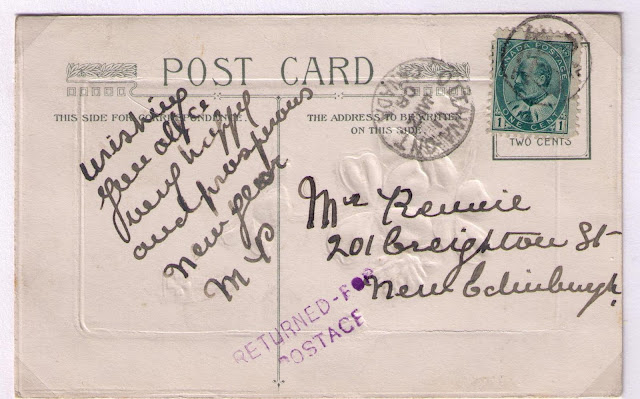 POST CARD
THIS SIDE FOR CORRESPONDENCE.
THE ADDRESS TO BE WRITTEN
ON THIS SIDE.
wishing
you
very happy
and prosperous
new year
M P
Mrs Rennie
201 Creighton St
New Edinburgh
RETURNED-FOR
POSTAGE
CANADA POSTAGE
1 ONE CENT 1
TWO CENTS